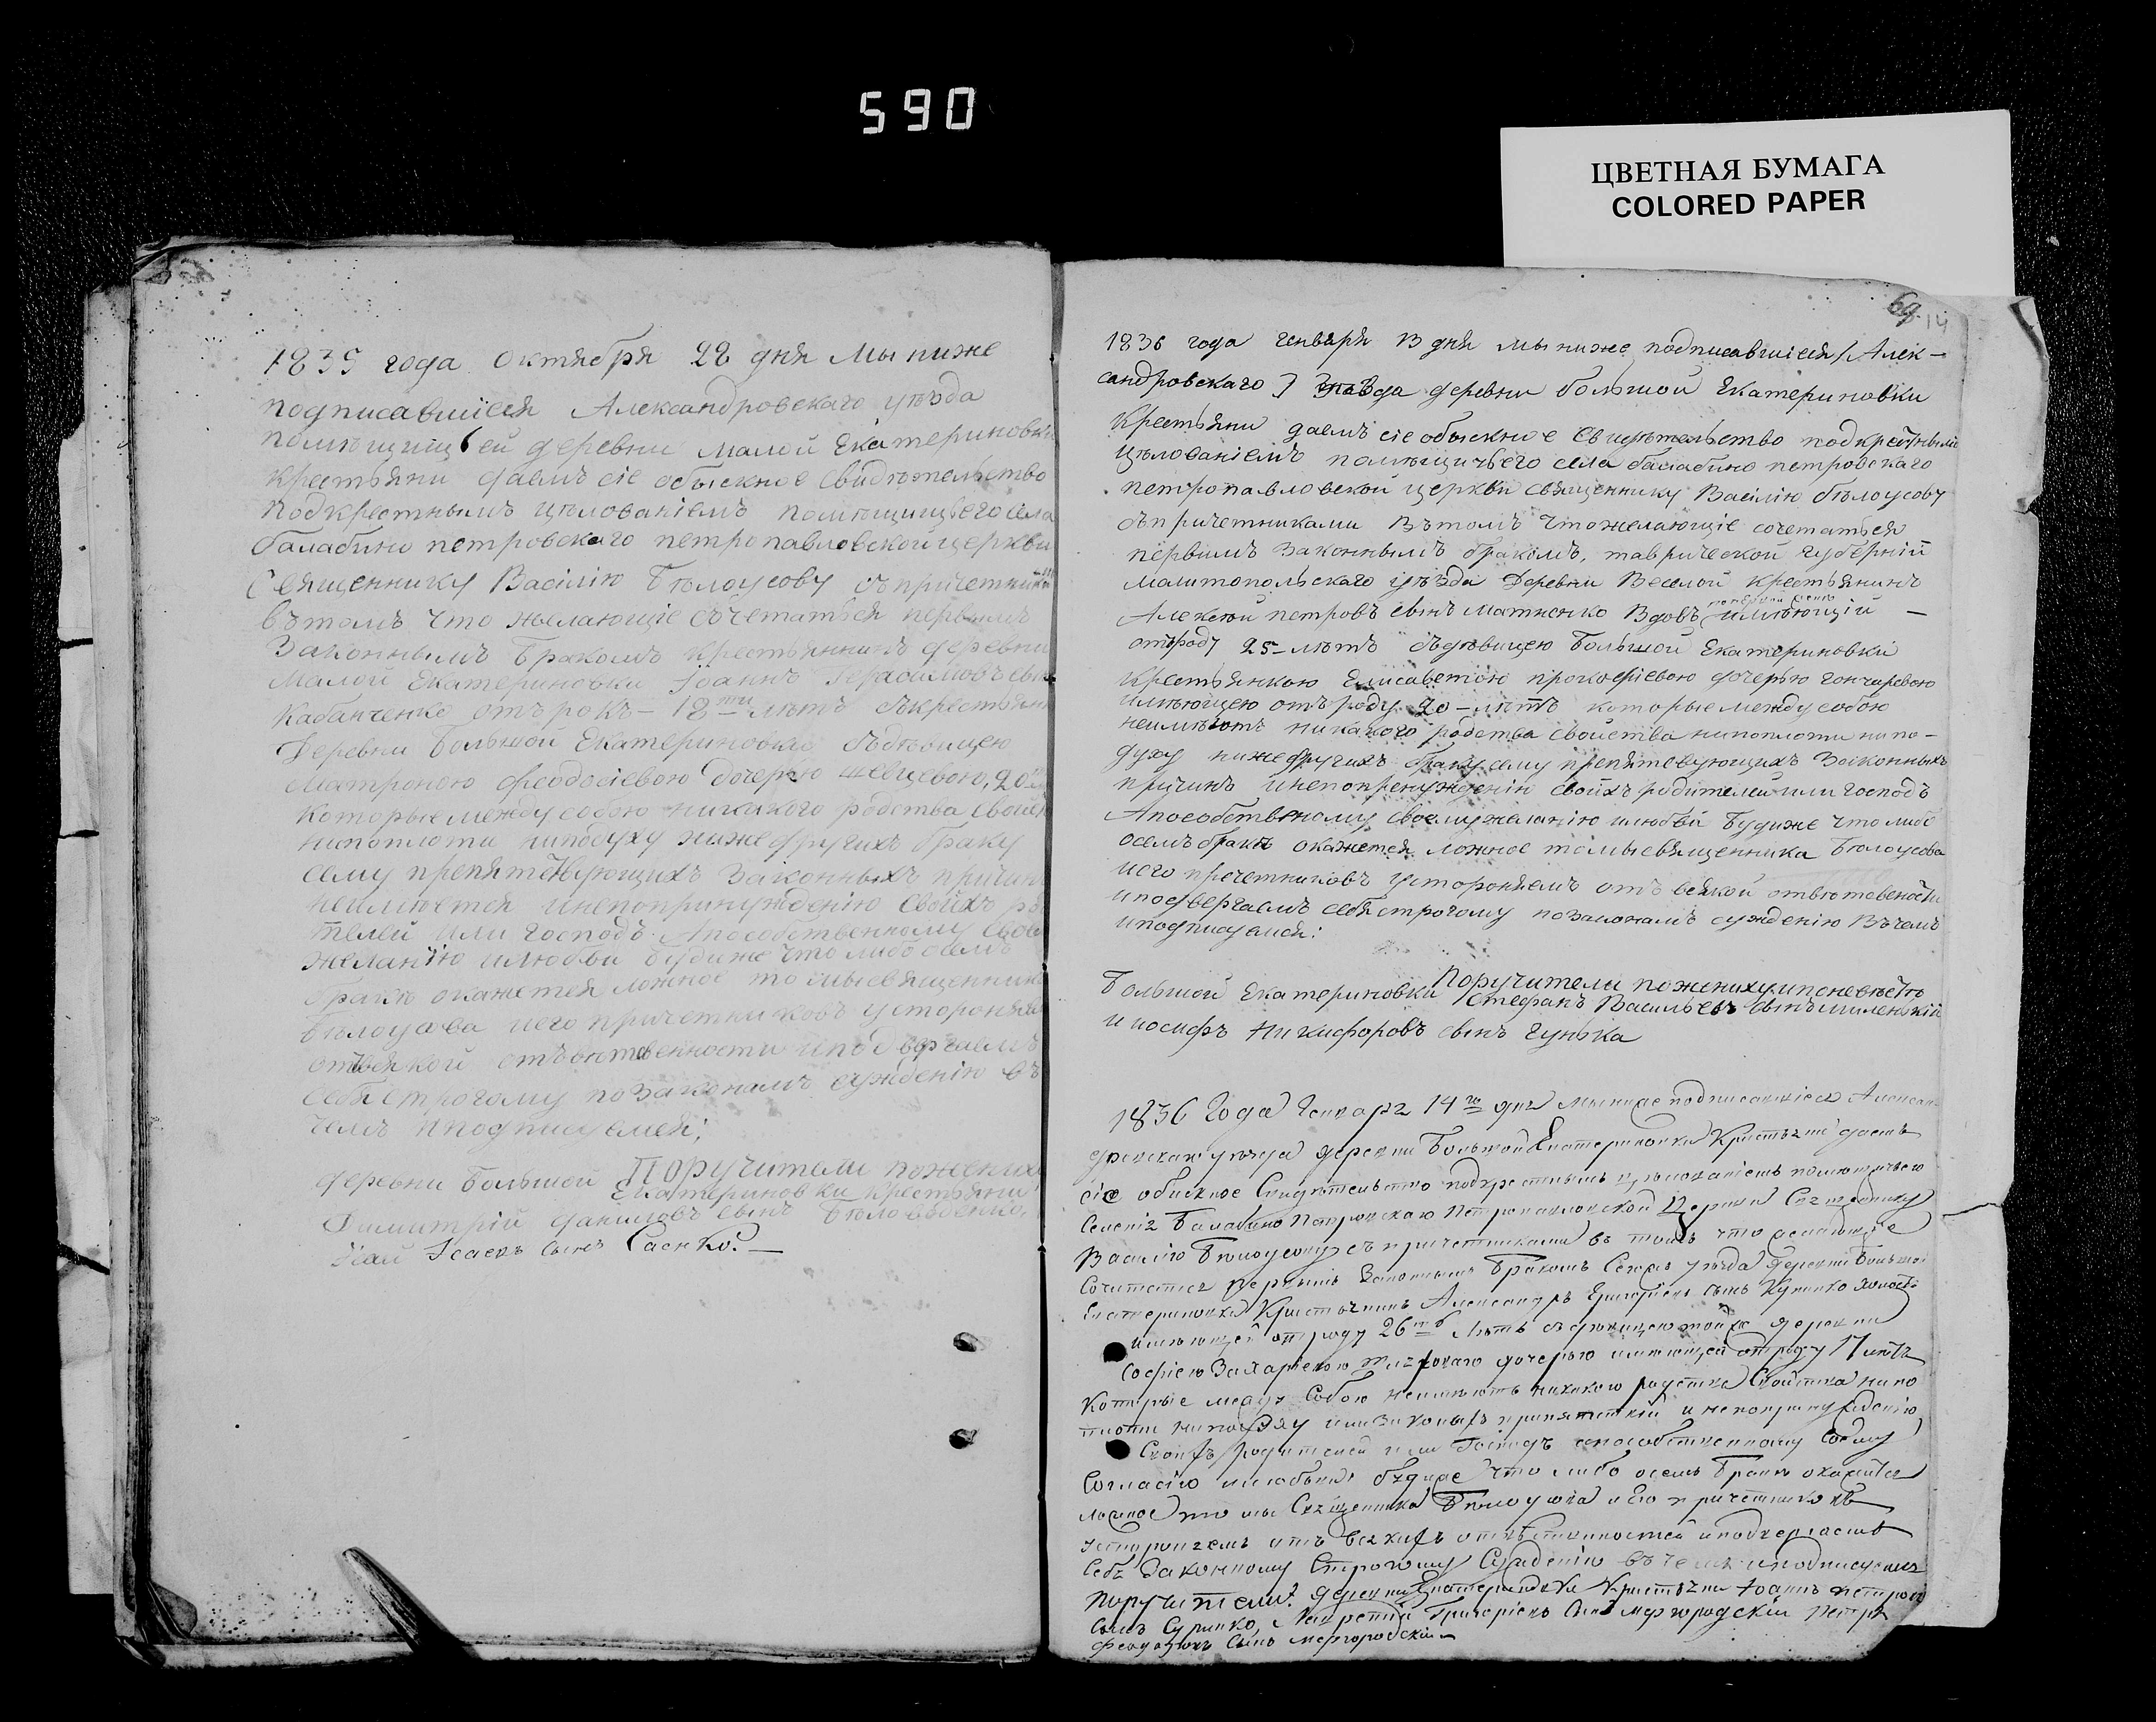 590
ЦВЕТНАЯ БУМАГА
COLORED PAPER
1835 года Октября 22 дня мы ниже
подписавшіеся Александровскаго уѣзда
помѣщицьей деревни малой Екатериновки
крестьяни даемъ сіе обыскное свидѣтельство
подкрестнымъ цѣлованіемъ помѣщицьего села
балабино петровскаго петропавловской церкви
Священнику Василію Бѣлоусову съпричетники
вътомъ что желающіе сочетаться первымъ
Законнымъ Бракомъ крестьянинъ деревни
Малой Екатериновки Іоаннъ Герасимовъ сын
Кабанченко отъ рокъ - 18ти лѣтъ съкрестьянк
Деревни Большой Екатериновки съдѣвицею
Матроною феодосіевою дочерью шевцевою, 20
которые между собою никакого родства свойст
нипоплоти иниподуху ниже другихъ браку
сему препятствующихъ законныхъ причин
неимѣется инепопринужденію своихъ ро
телей или господъ Апособственному своем
желанію илюбви будиже что либо осемъ
бракѣ окажется ложное то мысвященника
Бѣлоусова иего причетниковъ устороняем
отвсякой отвѣтственности иподвергаемъ
себя строгому позаконамъ сужденію въ
чемъ иподписуемся;
Поручители пожених
деревни Большой Екатериновки крестьяни
Димитрій даниловъ сынъ
Исаевъ сынъ Саенко.
69 14
1836 года генваря 13 дня мы ниже подписавшіеся /Алек-
сандровскаго/ уѣзда деревни большой Екатериновки
крестьяни даемъ сіе обыскное свидѣтельство подкрестнымъ
цѣлованіемъ помѣщичьего села балабино петровскаго
петропавловской церкви священнику Василію бѣлоусову
съпричетниками Вътомъ чтожелающіе сочетаться
первымъ Законнымъ бракомъ, таврической губерній
малитопольскаго уѣзда Деревни Веселой крестьянинъ
Алексѣй петровъ сынъ матненко Вдовъ имѣющій -
отъроду 25-лѣтъ съдѣвицею Большой Екатериновки
крестьянкою Елисаветою прокофіевою дочерью гончаревою
имѣющею отъроду 20-лѣтъ которые между собою
неимѣютъ никакого родства свойства нипоплоти нипо-
духу ниже другихъ браку сему препятствующихъ Законныхъ
причинъ инепопренужденію своихъ родителей или господъ
Апособственному своемужеланію илюбви Будиже что либо
осемъ бракѣ окажется ложное томысвященника Бѣлоусова
иего причетниковъ устороняемъ отъ всякой отвѣтствености
иподвергаемъ себя строгому позаконамъ сужденію Въчемъ
иподписуемся:
Поручители поженихуипоневѣстѣ
Большой Екатериновки Стефанъ Васильевъ сынъ
и иосифъ Никифоровъ сынъ Гунька
1836 Года Генваря 14го дня мыниже подписавшіеся Алексан-
дровскаго уѣзда деревни Большой Екатериновки Крестьяне даемъ
сіе обыскное Свидѣтельство подкрестнымъ цѣлованіемъ помѣщичьего
Селенія Балабино Петровскаго Петропавловской Церкви Священнику
Василію Бѣлоусову съ причетниками въ томъ что желающіе
Сочетатся первымъ Законнымъ Бракомъ Сегожъ уѣзда Деревни Большой
Екатериновки Крестьянинъ Александръ Григорьевъ сынъ холостъ
имѣющей отроду 26ть Лѣтъ съ дѣвицею тойже деревни
Софіею Захаріевою дочерью имѣющей отроду 17 лѣтъ
Которые между Собою неимѣютъ никакого родства Свойства нипо
плоти ниподуху илизаконыхъ припятствій и непопринужденію
Своихъ родителей или Господъ апособственному Своему
Согласію илюбыви будиже что либо осемъ Бракѣ окажится
ложное то мы Священника Бѣлоусова и Его причетниковъ
устороняемъ отъ всякихъ отвѣтственностей иподвергаемъ
Себя Законному Строгому Сужденію въ чемъ иподписуемся
Поручители: деревни Екатериновки Крестьяни Іоаннъ петров
Сынъ Григоріевъ Сынъ Мергородскій Петръ
Сынъ мергородскій